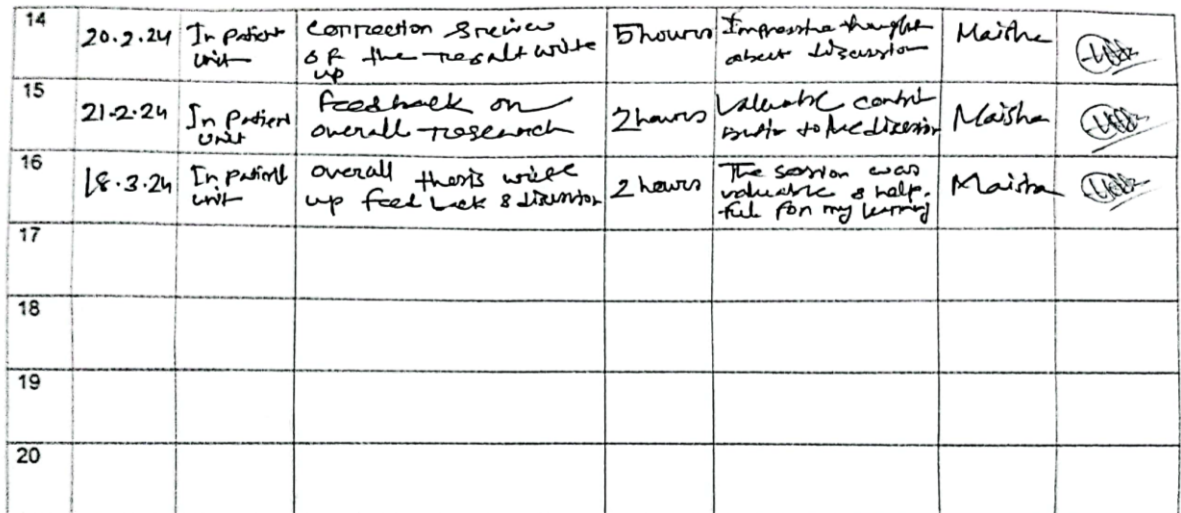 14
20.2.24 In patient unit Correction & review of the result write up 5 hours about discussion Maisha
15
21.2.24 In Patient unit feedback on overall research 2 hours Valuable to the discussion Maisha
16
18.3.24 In patient unit overall thesis write up feed back & discussion 2 hours The session was valuable & helpful for my learning Maisha
17
18
19
20